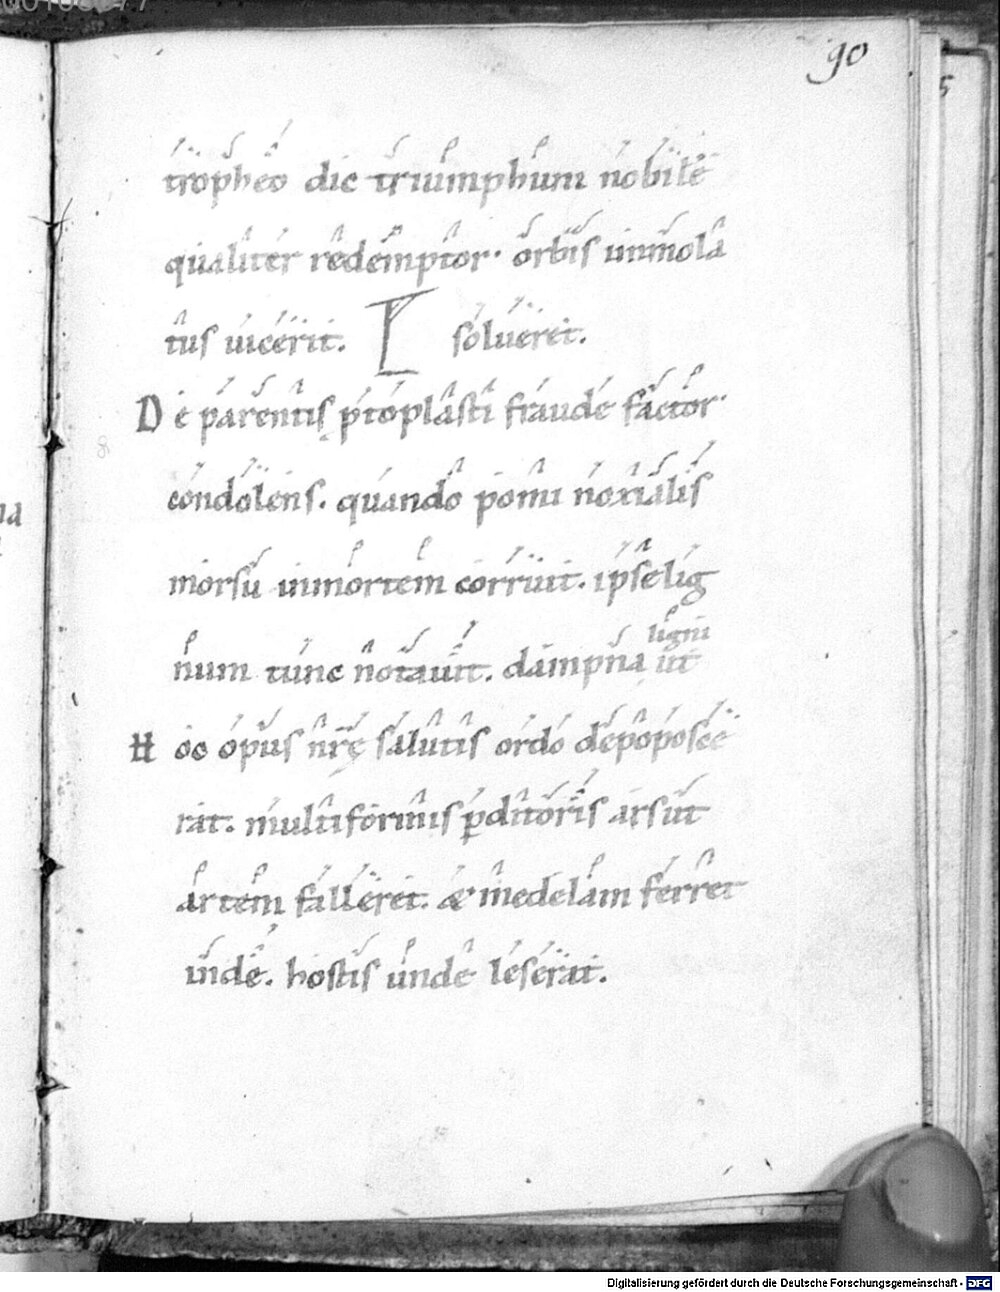 90
tropheo dic triumphum nobile
qualiter redemptor. orbis inmola
tus uicerit. solueret.
De parentis ptoplasti fraude factor.
condolens. quando pomi noxialis
morsu inmortem corruit. ipse lig
ligni
num tunc notauit. dampna ut
Hoc opus nrę salutis ordo depoposce
rat. multiformis pditoris ars ut
artem falleret. & medelam ferret
inde. hostis unde leserat.
Digitalisierung gefördert durch die Deutsche Forschungsgemeinschaft - DFG